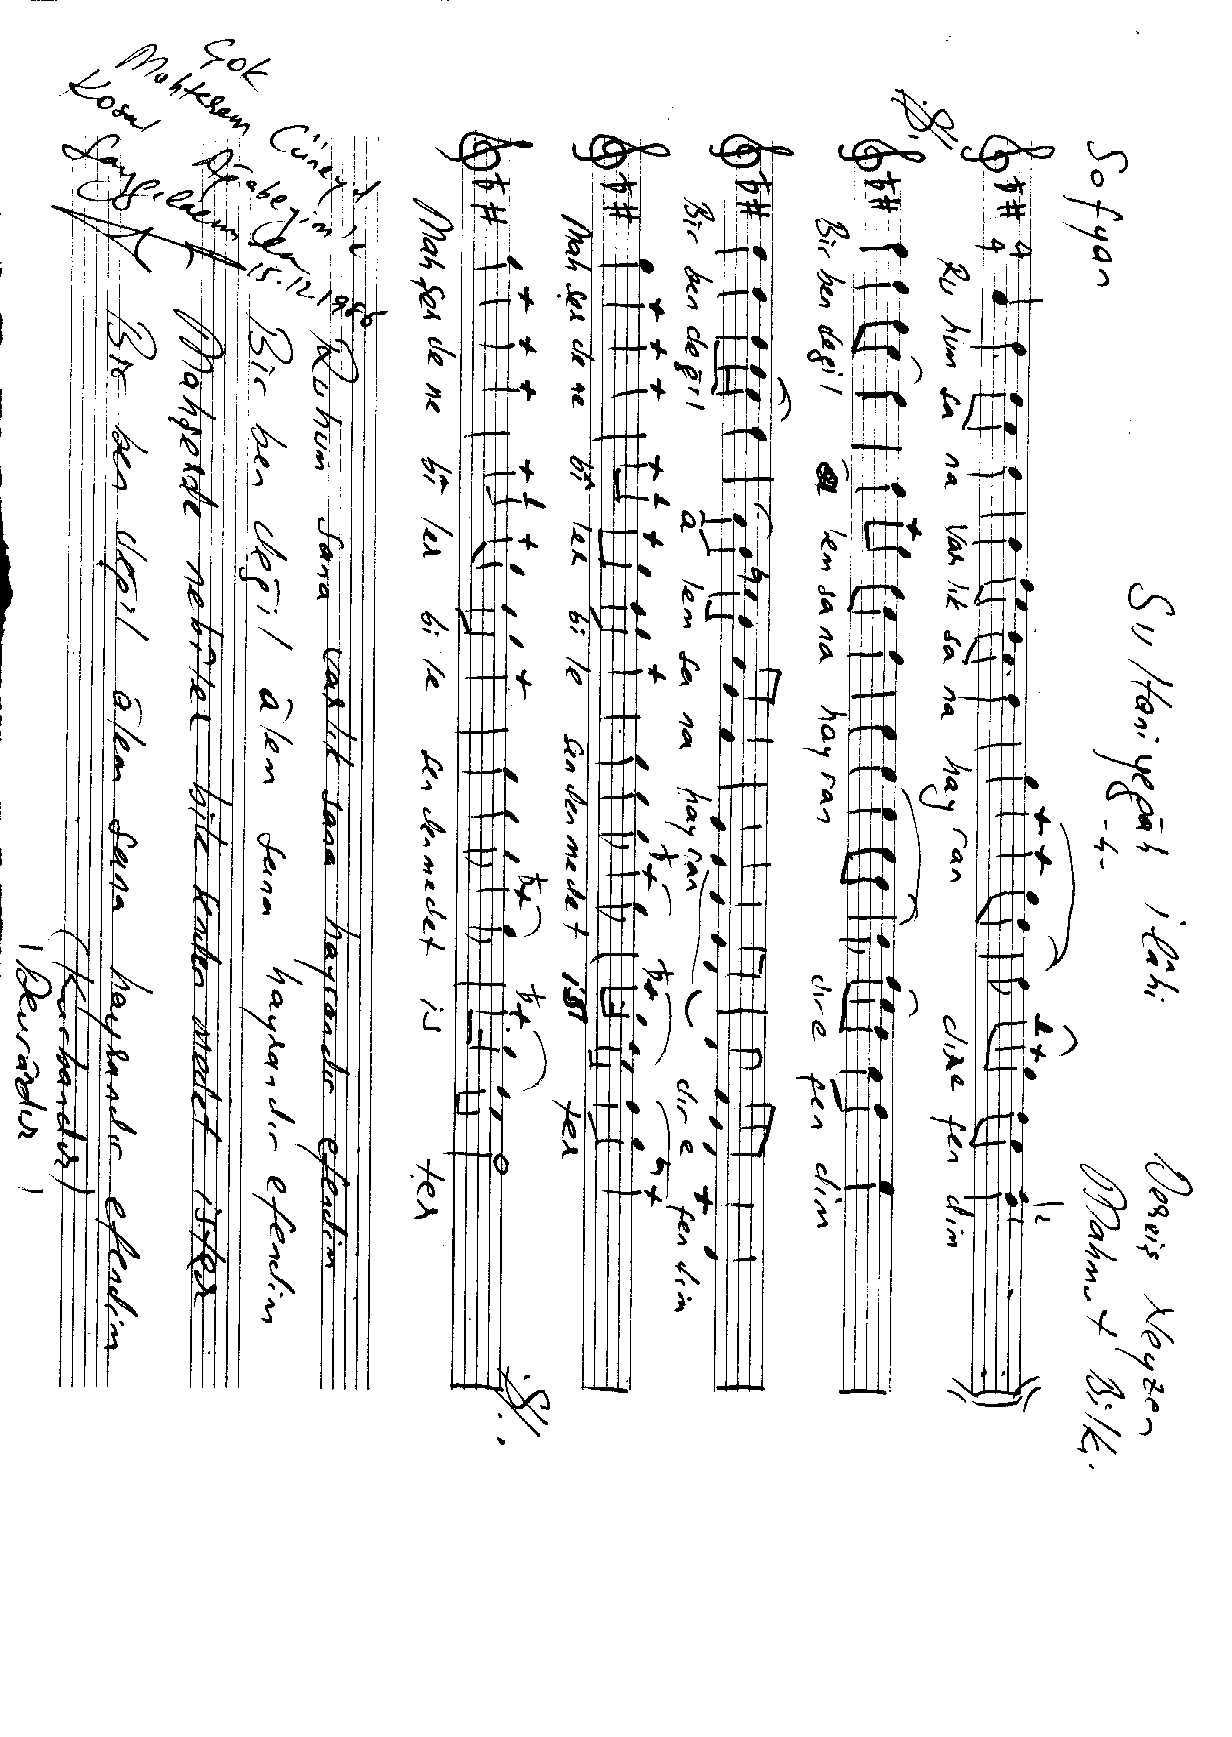 Sofyan
Sultaniyegâh ilâhi
-4-
Derviş Neyzen
Mahmut Bilki.
Ru hum sa na var lık sa na hay ran dır e fen dim
Bir ben değil â lem sa na hay ran dır e fen dim
Bir ben değil â lem sa na hay ran dır e fen dim
Mah şer de ne bi ter bi te sen den medet is ter
Mah şer de ne bi ler bi le sen den medet is ter
Ruhum sana varlık sana hayrandır efendim
Bir ben değil âlem sana hayrandır efendim
Mahşerde nebiler bile senden medet ister
Bir ben değil âlem sana hayrandır efendim
(Kurbandır)
(Devrândır)
Çok
Muhterem Cüneyd
Kosal Ağabeyim'e
Saygılarımla
15.12.1986